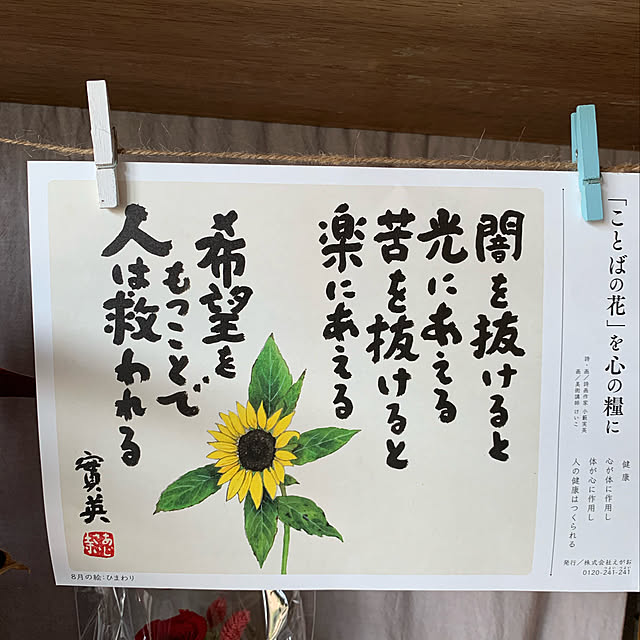 「ことばの花」を心の糧に
詩・画／詩画作家 小藪実英
画／美術講師 けいこ
健康
心が体に作用し
体が心に作用し
人の健康はつくられる
発行／株式会社えがお
0120-241-241
闇を抜けると
光にあえる
苦を抜けると
楽にあえる
希望を
もつことで
人は救われる
實英
8月の絵：ひまわり